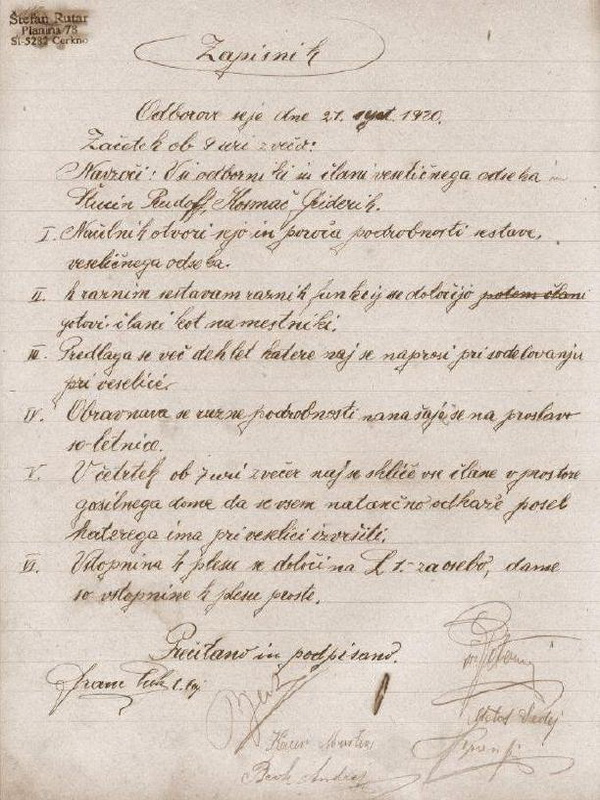 Štefan Rutar
Planina 78
SI-5282 Cerkno
Zapisnik
Odborove seje dne 21. 1920.
Začetek ob uri zvečer:
Navzoči: Vsi odborniki in člani veseličnega odseka in
Štucin Rudolf, Kosmač Friderik.
I. Načelnik otvori sejo in poroča podrobnosti sestave,
veseličnega odseka.
II. K raznim sestavam raznih funkcij se določijo potem člani
gotovi člani kot namestniki.
III. Predlaga se več deklet katere naj se naprosi pri sodelovanju
pri veselici.
IV. Obravnava se razne podrobnosti nanašajče se na proslavo
letnice.
V. V četrtek ob 7 uri zvečer naj se skliče vse člane v prostore
gasilnega doma da se vsem natančno odkaže posel
katerega ima pri veselici izvršiti.
VI. Vstopnina k plesu se določi na £ 1.- za osebo, dame
so vstopnine k plesu proste.
Prečitano in podpisano.
Franc
Metod
Bevk Andrej